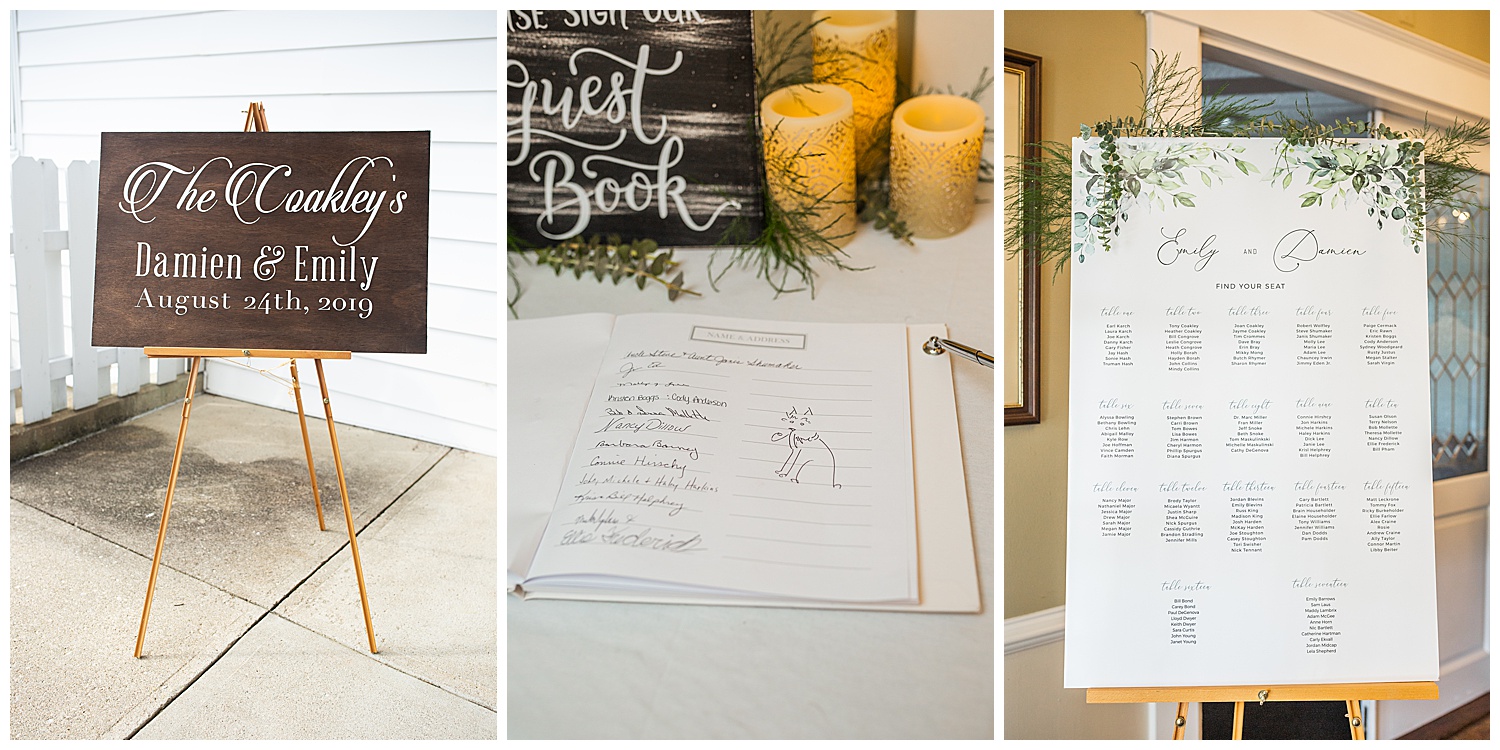 The Coakley's
Damien & Emily
August 24th, 2019
SE SIGN OUR
Guest
Book
NAME & ADDRESS
Uncle Steve & Aunt Janis Shumaker
Kirsten Boggs : Cody Anderson
Nancy Dillow
Barbara
Connie Hirschy
Michele & Haley Harkins
Helphrey
Frederick
Emily AND Damien
FIND YOUR SEAT
table one
Earl Karch
Laura Karch
Joe Karch
Danny Karch
Gary Fisher
Jay Hash
Sonie Hash
Truman Hash
table two
Tony Coakley
Heather Coakley
Bill Congrove
Leslie Congrove
Heath Congrove
Holly Borah
Hayden Borah
John Collins
Mindy Collins
table three
Joan Coakley
Jayme Coakley
Tim Crommes
Dave Bray
Erin Bray
Mikky Mong
Butch Rhymer
Sharon Rhymer
table four
Robert Wolfley
Steve Shumaker
Janis Shumaker
Molly Lee
Maria Lee
Adam Lee
Chauncey Irwin
Jimmy Eden Jr.
table five
Paige Cormack
Eric Rawn
Kristen Boggy
Cody Anderson
Sydney Woodgeard
Rusty Justus
Megan Stalter
Sarah Virgin
table six
Alyssa Bowling
Bethany Bowling
Chris Lehn
Abigail Malloy
Kyle Row
Joe Hoffman
Vince Camden
Faith Morman
table seven
Stephen Brown
Carri Brown
Tom Bowes
Lisa Bowes
Jim Harmon
Cheryl Harmon
Phillip Spurgus
Diana Spurgus
table eight
Dr. Marc Miller
Fran Miller
Jeff Snoke
Beth Snoke
Tom Maskulinkski
Michelle Maskulinski
Cathy DeGenova
table nine
Connie Hirshcy
Jon Harkins
Michele Harkins
Haley Harkins
Dick Lee
Jamie Lee
Krist Helphrey
Bill Helphrey
table ten
Susan Olson
Terry Nelson
Bob Mollette
Therese Mollette
Nancy Dillow
Ellie Frederick
Bill Pham
table eleven
Nancy Major
Nathaniel Major
Jessica Major
Drew Major
Sarah Major
Megan Major
Jamie Major
table twelve
Brody Taylor
Micaela Wyantt
Justin Sharp
Shea McGuire
Nick Spurgus
Cassidy Guthrie
Brandon Stradling
Jennifer Mills
table thirteen
Jordan Blevins
Emily Blevins
Russ King
Madison King
Josh Harden
McKay Harden
Joe Stoughton
Casey Stoughton
Tori Swisher
Nick Tennant
table fourteen
Gary Bartlett
Patricia Bartlett
Brain Householder
Elaine Householder
Tony Williams
Jennifer Williams
Dan Dodds
Pam Dodds
table fifteen
Matt Leckrone
Tommy Fox
Ricky Burkeholder
Ellie Farlow
Alex Craine
Rosie
Andrew Craine
Ally Taylor
Connor Martin
Libby Beiter
table sixteen
Bill Bond
Carey Bond
Paul DeGenova
Lloyd Dwyer
Keith Dwyer
Sara Curtis
John Young
Janet Young
table seventeen
Emily Barrows
Sam Laus
Maddy Lambrix
Adam McGee
Anne Horn
Nic Bartlett
Catherine Hartman
Carly Ekvall
Jordan Midcap
Lela Shepherd